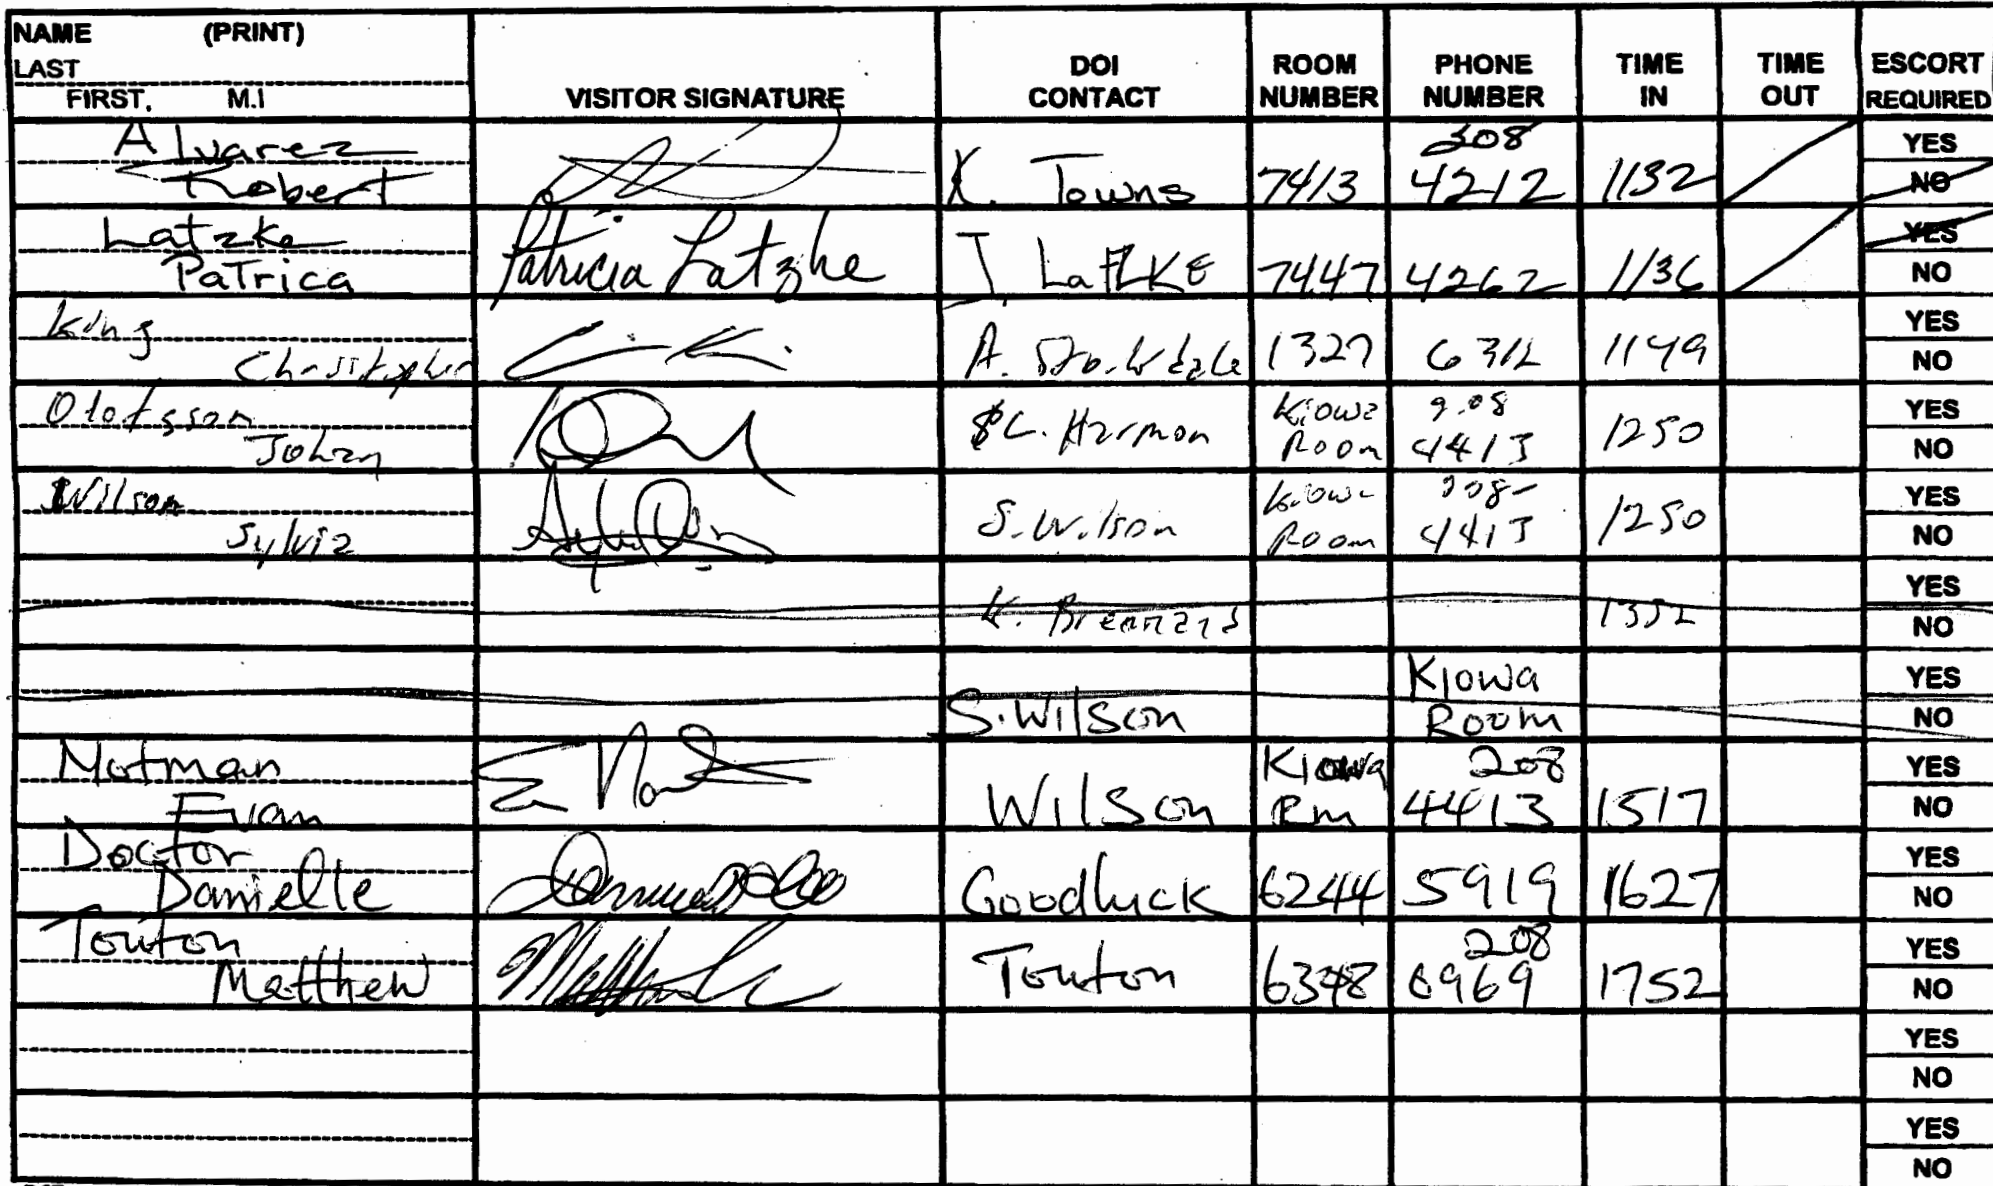 NAME (PRINT)
LAST
FIRST, M.I
VISITOR SIGNATURE
DOI
CONTACT
ROOM
NUMBER
PHONE
NUMBER
TIME
IN
TIME
OUT
ESCORT
REQUIRED
Alvarez
Robert
K. Towns
7413
208
4212
1132
YES
NO
Latzke
Patrica
Patricia Latzke
J. LaTZKE
7447
4262
1136
YES
NO
King
Christopher
A. Stockdale
1327
6312
1149
YES
NO
Olofsson
Johan
C. Harmon
Kiowa
Room
208
4413
1250
YES
NO
Wilson
Sylvia
S. Wilson
Kiowa
Room
208-
4413
1250
YES
NO
1352
YES
NO
S. Wilson
Kiowa
Room
YES
NO
Motman
Evan
Wilson
Kiowa
Rm
208
4413
1517
YES
NO
Doctor
Danielle
Goodluck
6244
5919
1627
YES
NO
Touton
Matthew
Touton
6348
208
6969
1752
YES
NO
YES
NO
YES
NO